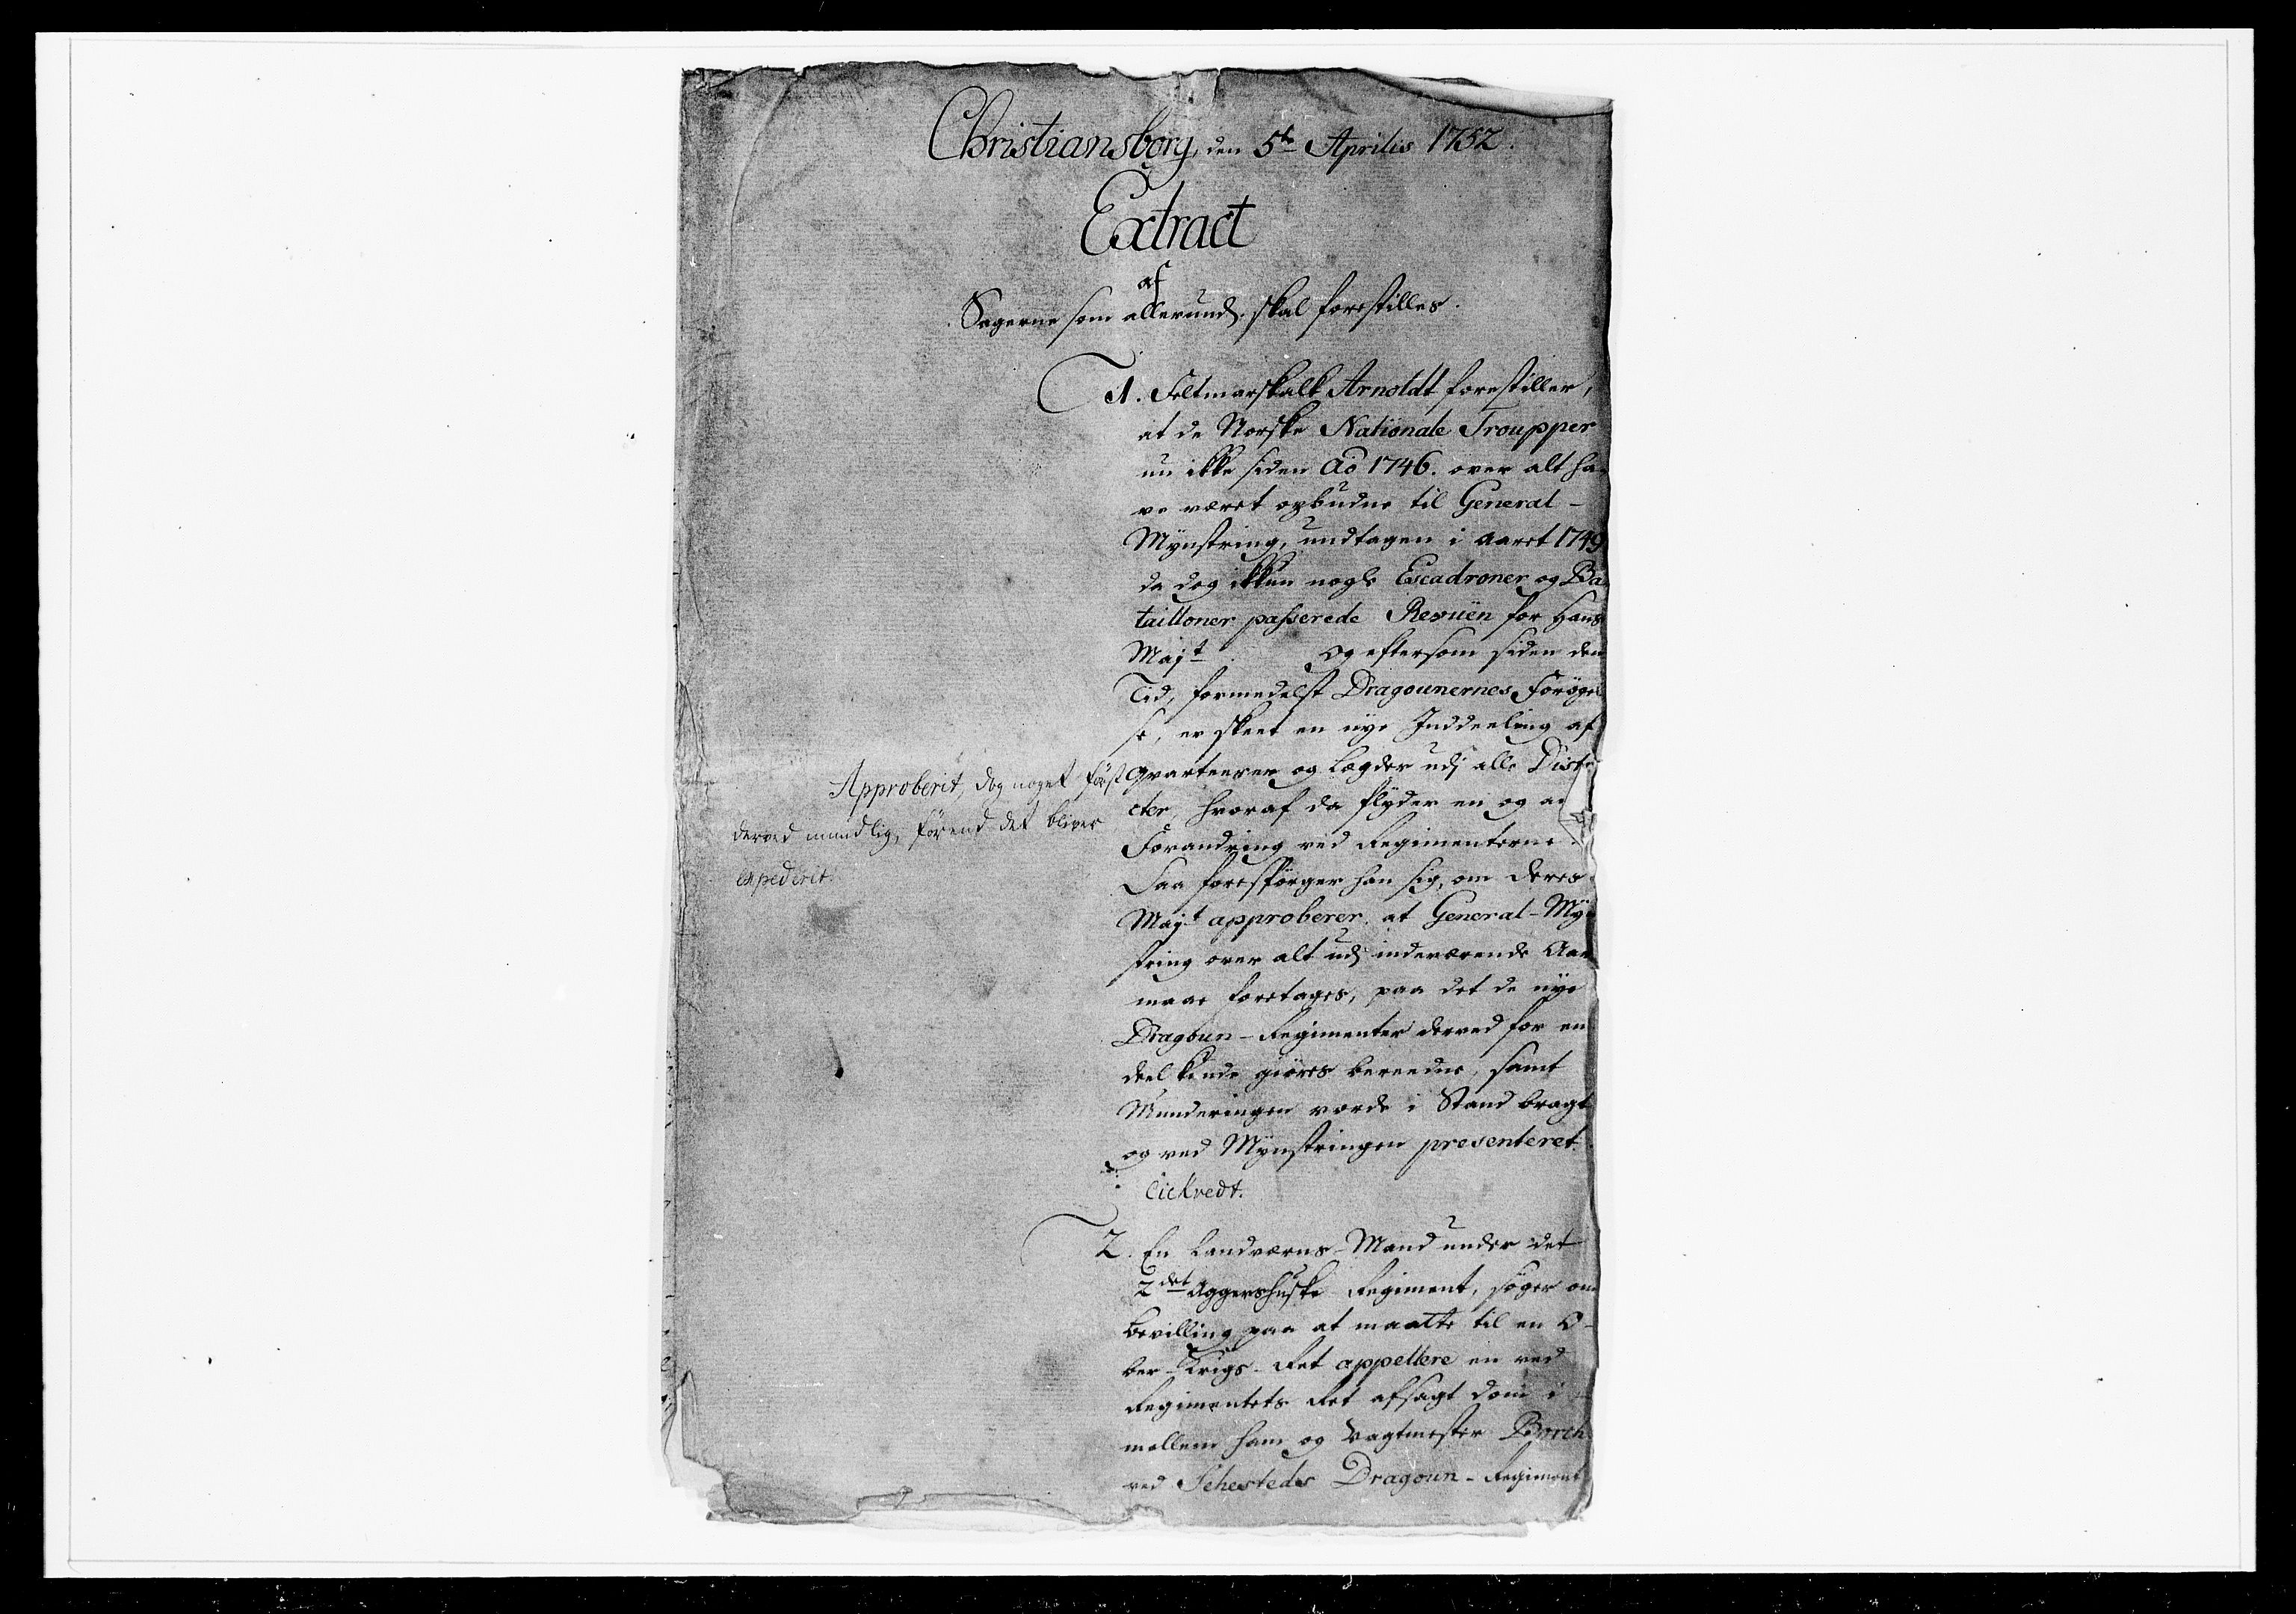 Christiansborg, den 5te Aprilis 1752.
Extract
af
Sagerne som allerund. skal forestilles.
1. Feltmarskalk Arnoldt forestiller,
at de Norske Nationale Troupper
nu ikke siden Ao 1746. over alt ha-
ve været opbudne til General-
Mynstring, undtagen i Aaret 1749
da dog ikkun nogle Escadroner og Ba-
tailloner passerede Revüen for Hans
Majt. Og eftersom siden den
Tid, formedelst Dragounernes Forøgel-
se, er skeet en nye Inddeeling af
Qvarteerer og Lægder udj alle Distri-
cter, hvoraf da flyder en og
Forandring ved Regimenterne.
Saa forespørger han sig, om Deres
Majt approberer, at General-Myn-
string over alt udj indeværende Aar
maae foretages, paa det de nye
Dragoun-Regimenter derved for en
deel kunde giøres bereedne, samt
Munderingen vorde i Stand bragt
og ved Mynstringen presenteret.
Approberit, dog noget først
derved mundlig, førend det bliver
expederit.
2. En Landværns-Mand under det
2det Aggershuske Regiment, søger om
Bevilling paa at maatte til en O-
ber-Krigs-Ret appellere en ved
Regimentets Ret afsagt Dom i
mellem ham og Vagtmester Borch
ved Sehesteds Dragoun-Regiment